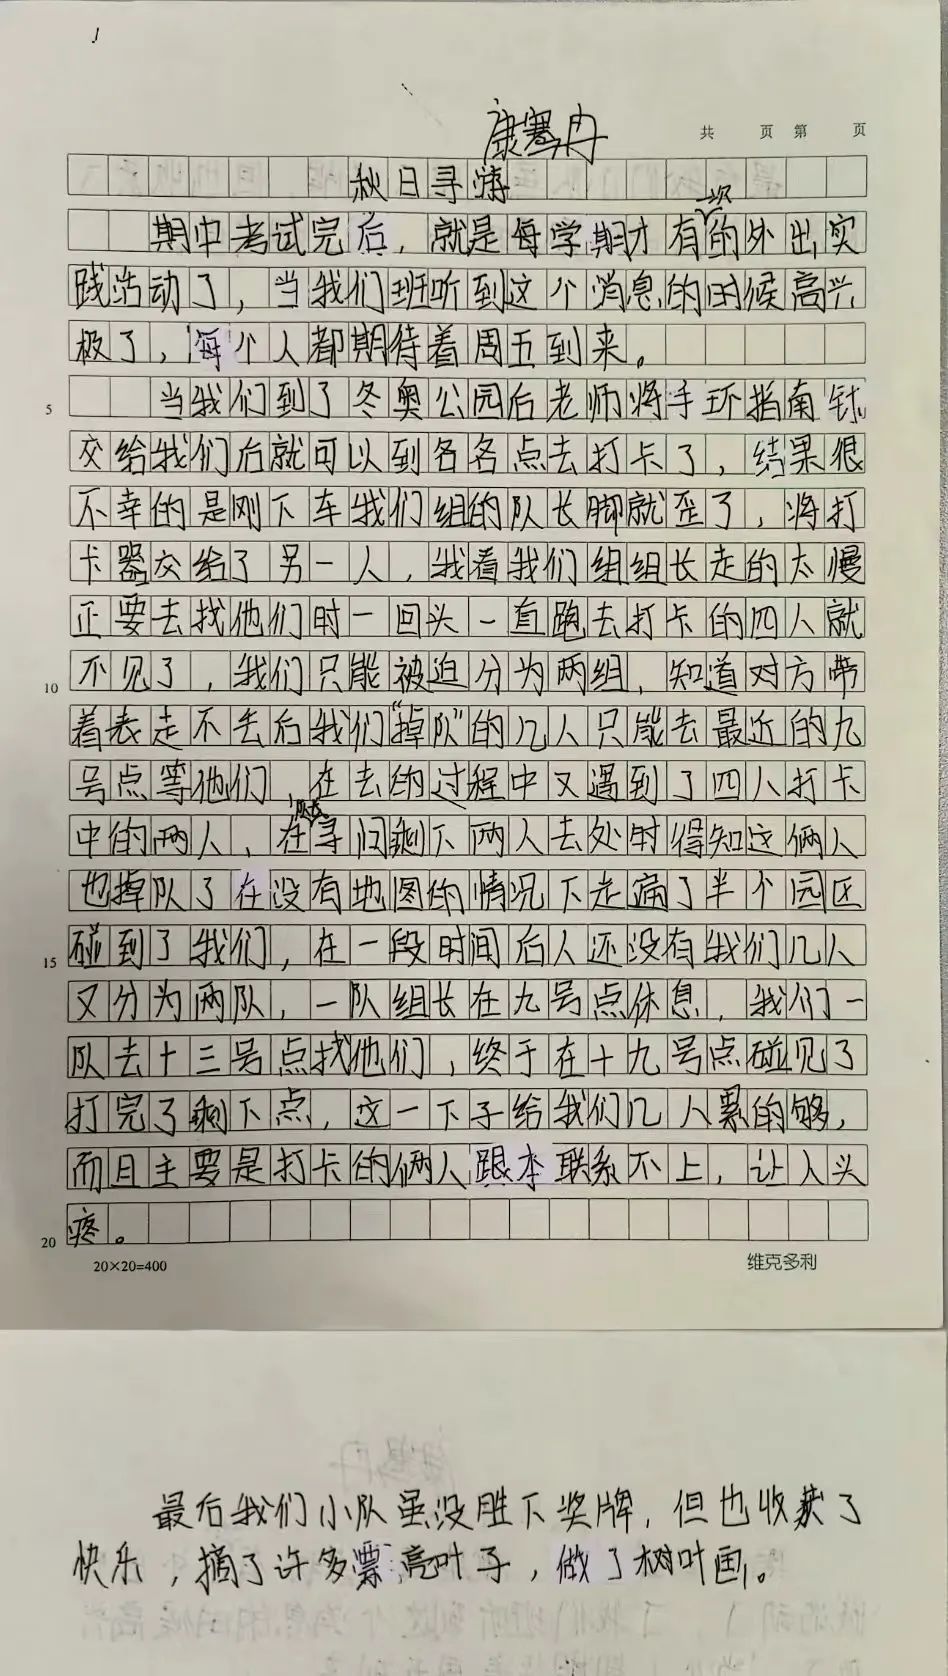 1
康骞冉
共 页 第 页
秋日寻情
期中考试完后，就是每学期才有一次的外出实
践活动了，当我们班听到这个消息的时候高兴
极了，每个人都期待着周五到来。
5
当我们到了冬奥公园后老师将手环指南针
交给我们后就可以到各各点去打卡了，结果很
不幸的是刚下车我们组的队长脚就歪了，将打
卡器交给了另一人，我看我们组组长走的太慢
正要去找他们时一回头一直跑去打卡的四人就
10
不见了，我们只能被迫分为两组，知道对方带
着表走不丢后我们“掉队”的几人只能去最近的九
号点等他们，在去的过程中又遇到了四人打卡
中的两人，在寻问剩下两人去处时得知这俩人
也掉队了在没有地图的情况下走遍了半个园区
15
碰到了我们，在一段时间后人还没有我们几人
又分为两队，一队组长在九号点休息，我们一
队去十三号点找他们，终于在十九号点碰见了
打完了剩下点，这一下子给我们几人累的够，
而且主要是打卡的俩人跟本联系不上，让人头
20
疼。
20×20=400
维克多利
最后我们小队虽没胜下奖牌，但也收获了
快乐，摘了许多票亮叶子，做了树叶画。